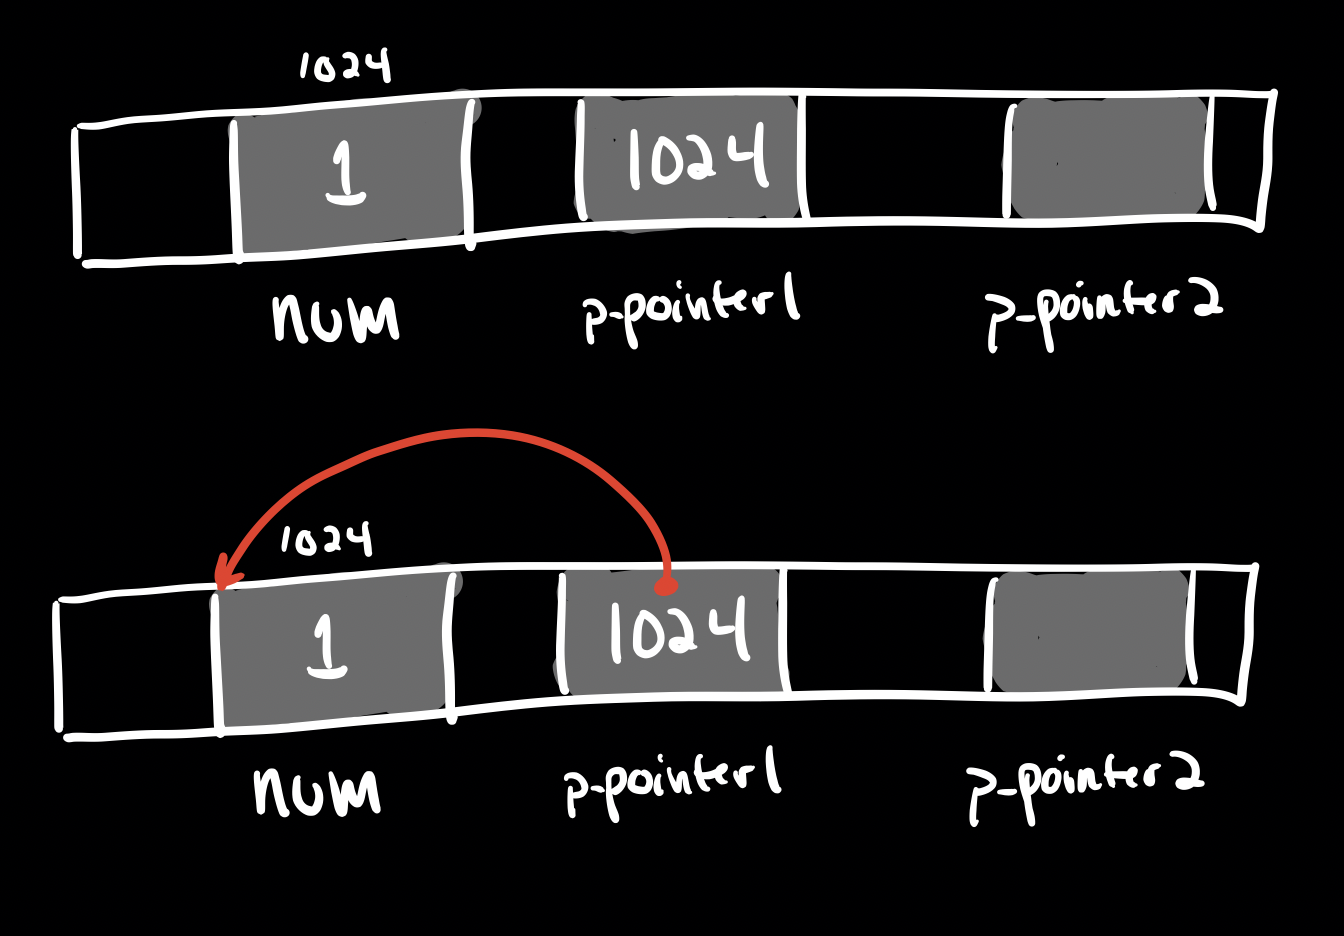 1024
1 1024
num p-pointer1 p-pointer2
1024
1 1024
num p-pointer1 p-pointer2